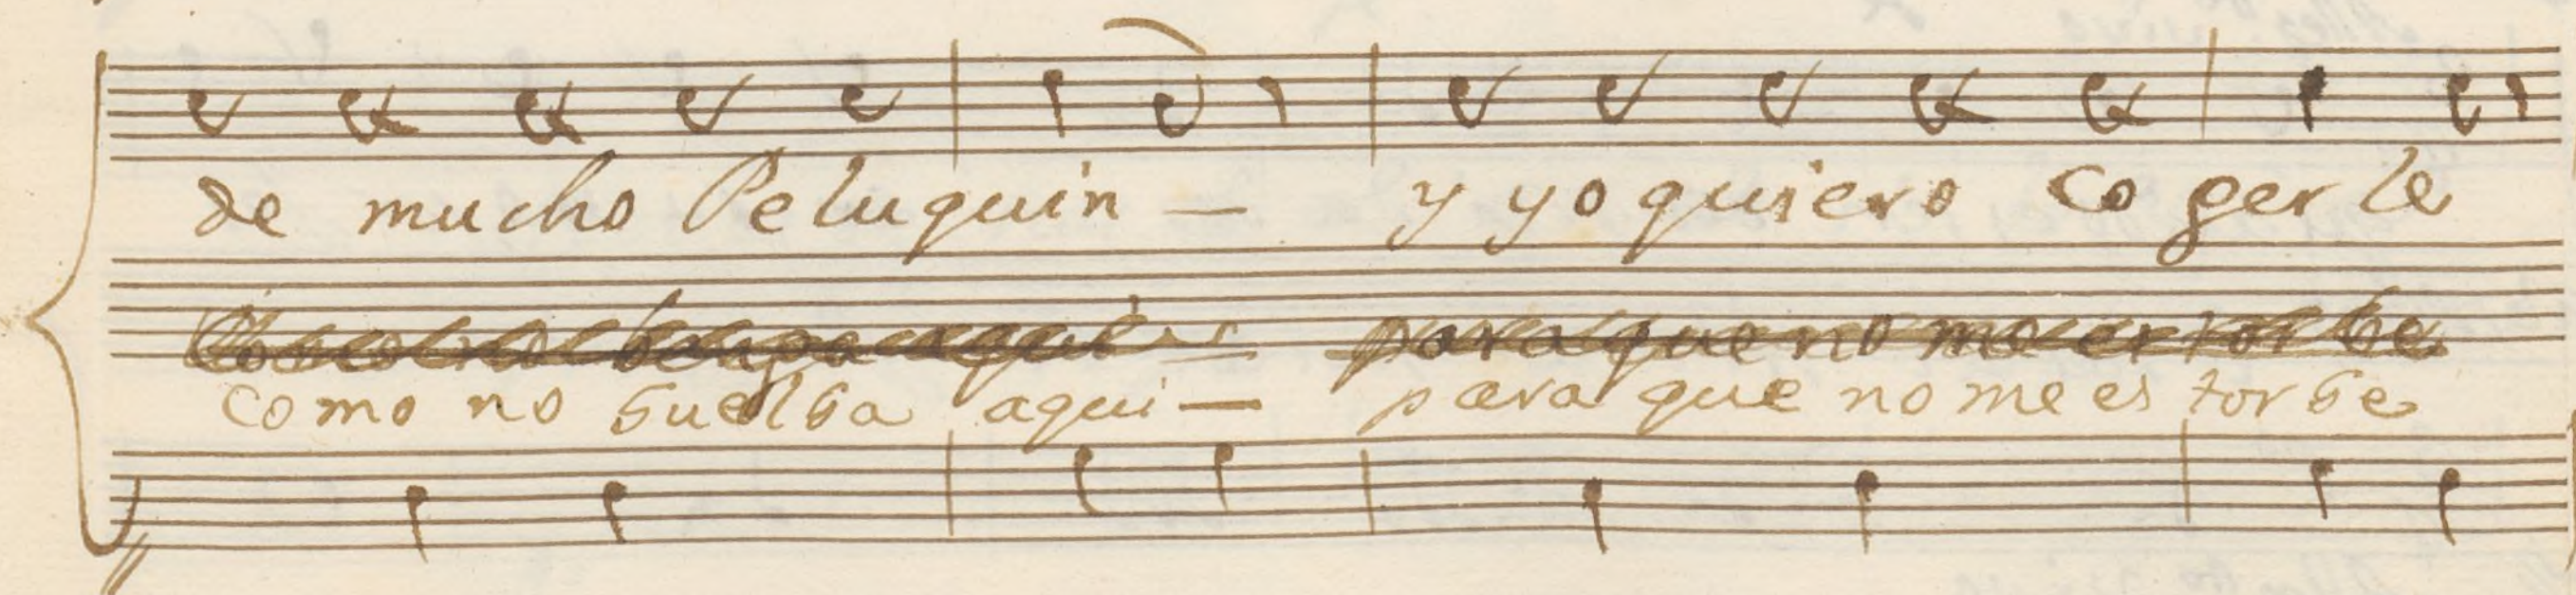 de mucho Peluquin — y yo quiero co ger le
benga aqui — para que no me es tor be
como no buelba aqui — para que no me es tor be